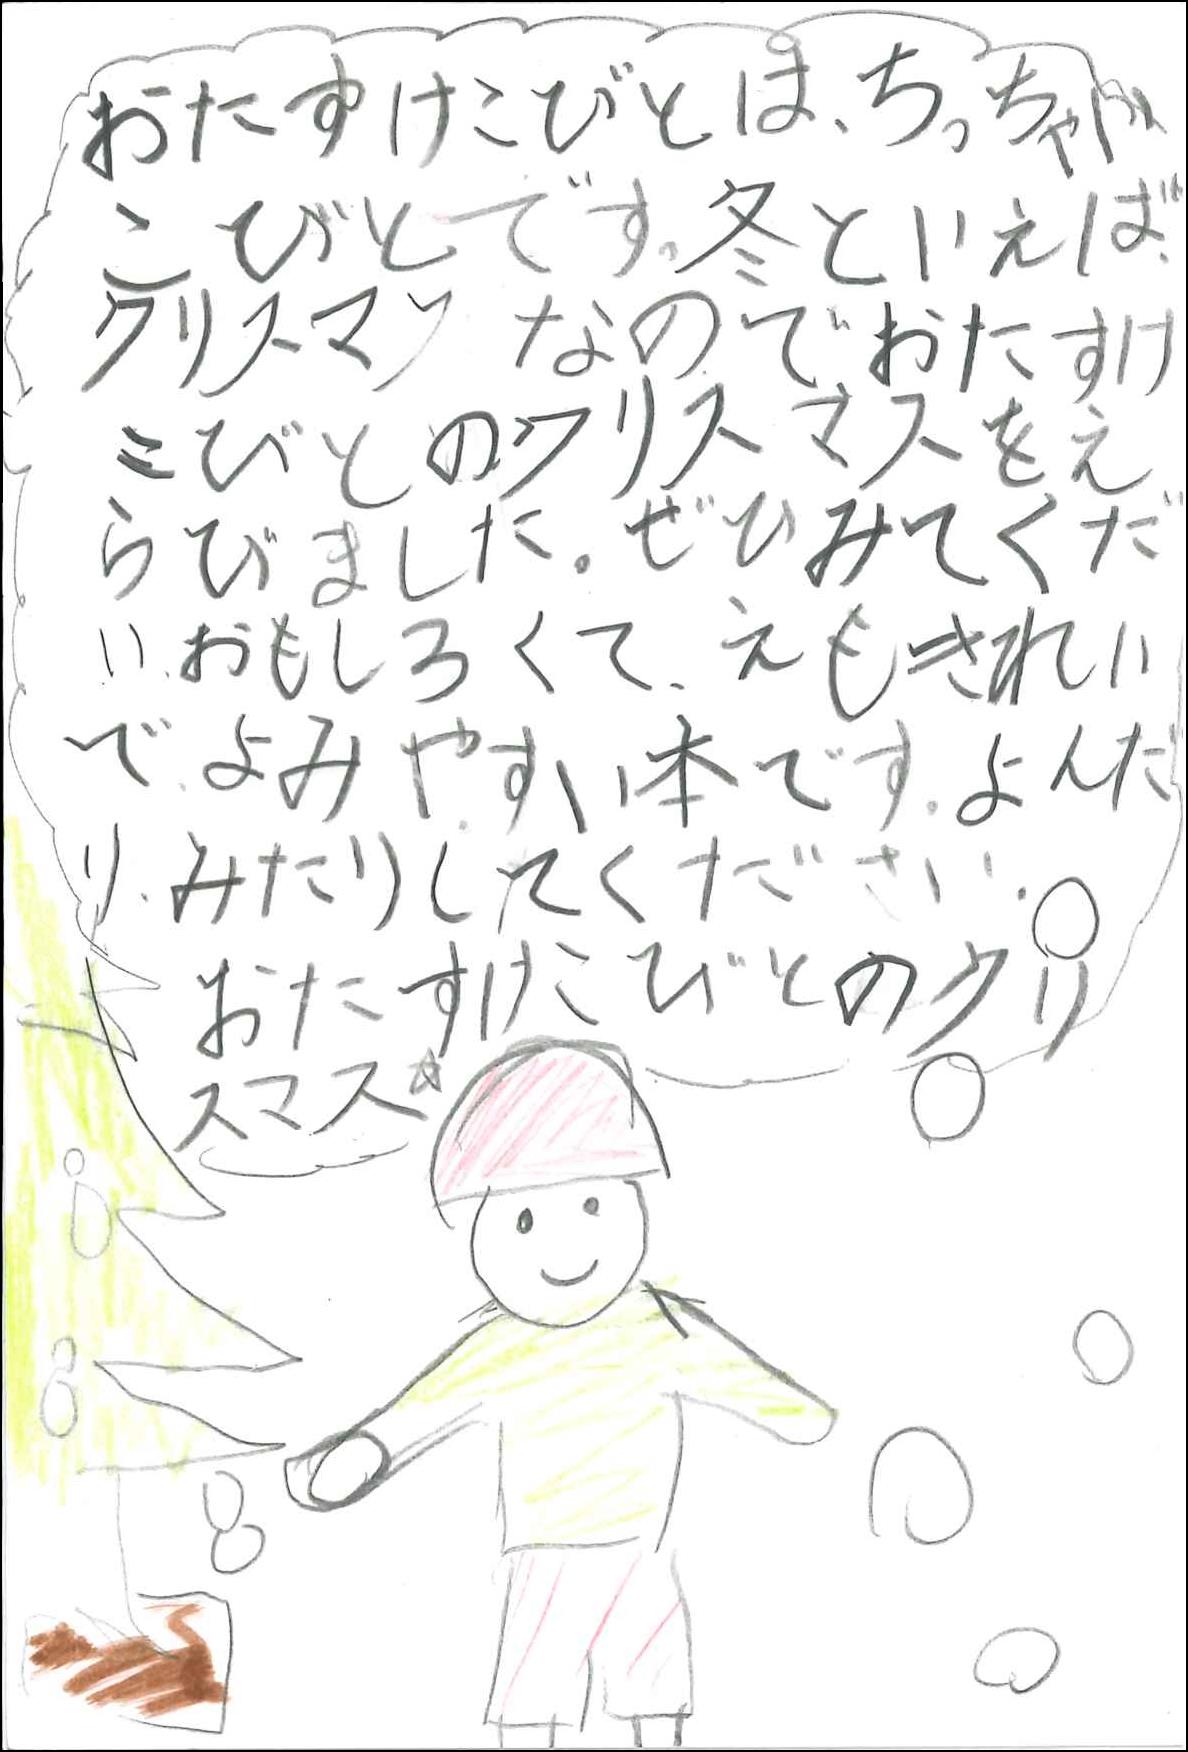 おたすけこびとは、ちっちゃい
こびとです。冬といえば、
クリスマス なのでおたすけ
こびとのクリスマスをえ
らびました。ぜひみてくだ
い。おもしろくて、えもきれい
で、よみやすい本です。よんだ
り、みたりしてください。
おたすけこびとのクリ
スマス☆